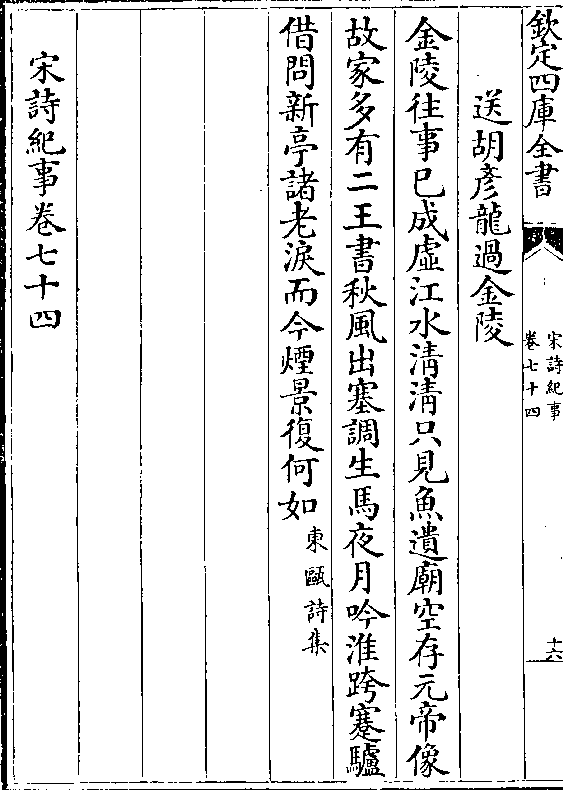 欽定四庫全書
宋詩紀事
卷七十四
十六
送胡彥龍過金陵
金陵往事已成虛江水清清只見魚遺廟空存元帝像
故家多有二王書秋風出塞調生馬夜月吟淮跨蹇驢
借問新亭諸老淚而今煙景復何如
東甌詩集
宋詩紀事卷七十四